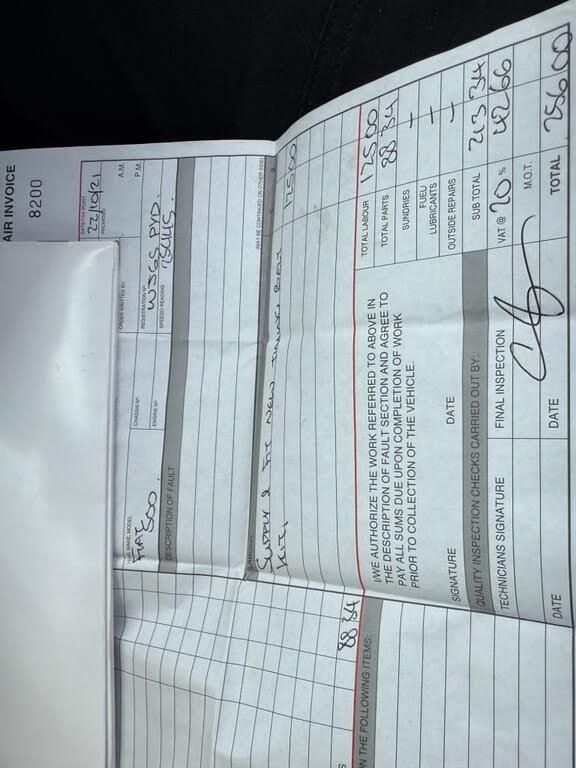 AIR INVOICE
8200
DATE/TAX POINT
22/10/21
ORDER WRITTEN BY
PROMISED
A.M.
P.M.
MAKE, MODEL
FIAT 500.
CHASSIS Nº
ENGINE Nº
REGISTRATION Nº
SPEEDO READING
DESCRIPTION OF FAULT
(MAY BE CONTINUED ON OTHER SIDE)
SUPPLY & FIT NEW TIMING BELT
KIT.
125.00
88 34
I/WE AUTHORIZE THE WORK REFERRED TO ABOVE IN
THE DESCRIPTION OF FAULT SECTION AND AGREE TO
PAY ALL SUMS DUE UPON COMPLETION OF WORK
PRIOR TO COLLECTION OF THE VEHICLE.
SIGNATURE
DATE
TOTAL LABOUR 125 00
TOTAL PARTS 88 34
SUNDRIES –
FUEL/
LUBRICANTS –
OUTSIDE REPAIRS –
SUB TOTAL 213 34
VAT @ 20 % 42 66
M.O.T.
TOTAL 256 00
QUALITY INSPECTION CHECKS CARRIED OUT BY:
TECHNICIANS SIGNATURE
FINAL INSPECTION
DATE
DATE
N THE FOLLOWING ITEMS: